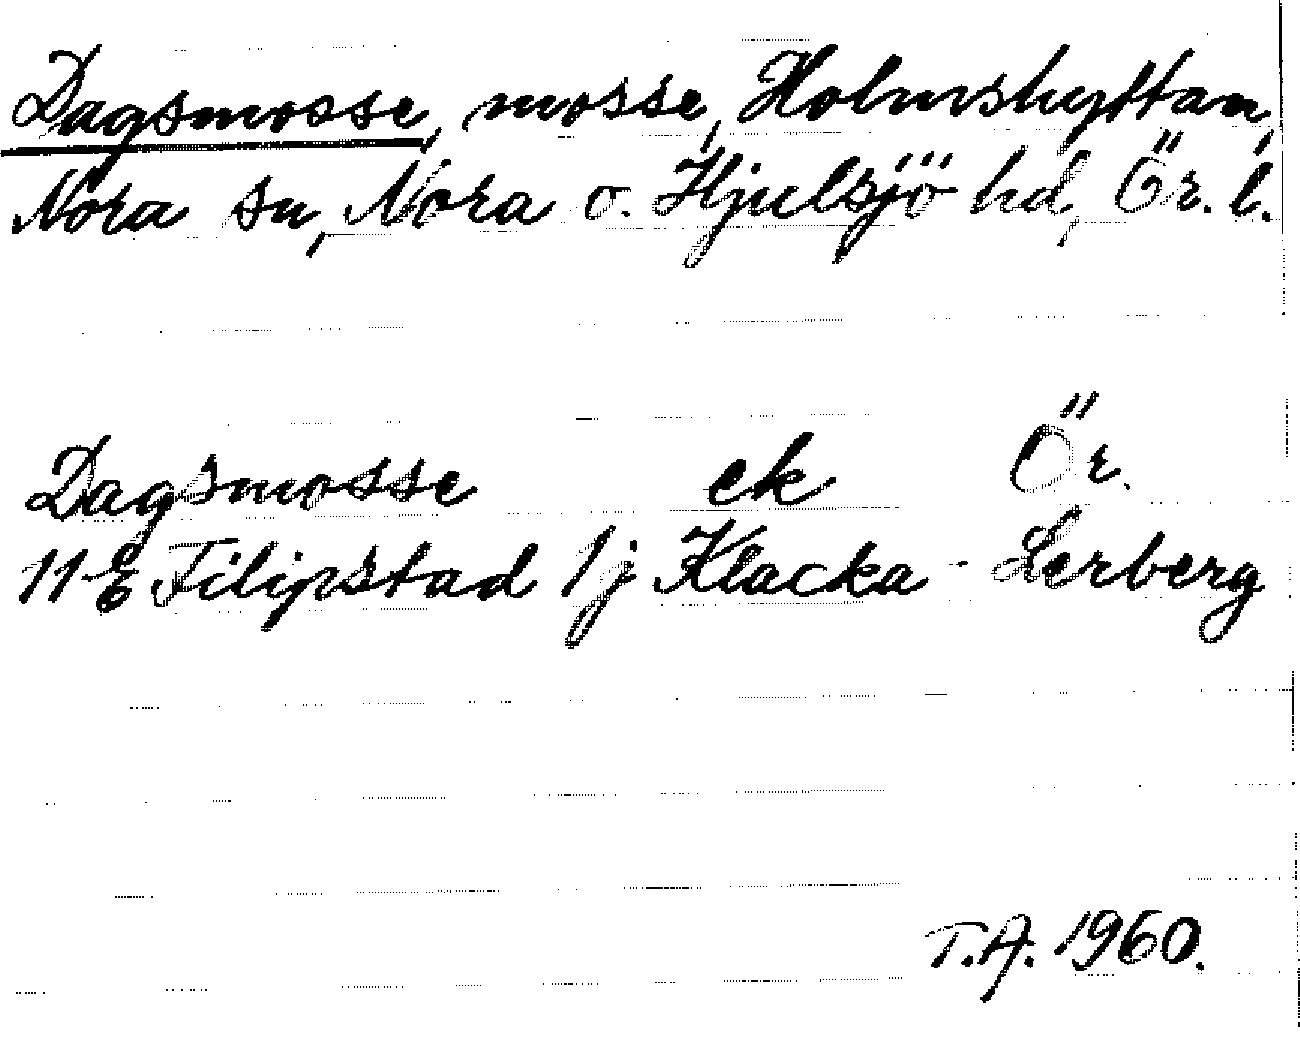 Dagsmosse, mosse, Holmshyttan,
Nora sn, Nora o. Hjulsjö hd, Ör. l.
Dagsmosse ek Ör.
11 E Filipstad 1j Klacka - Lerberg
T.A. 1960.